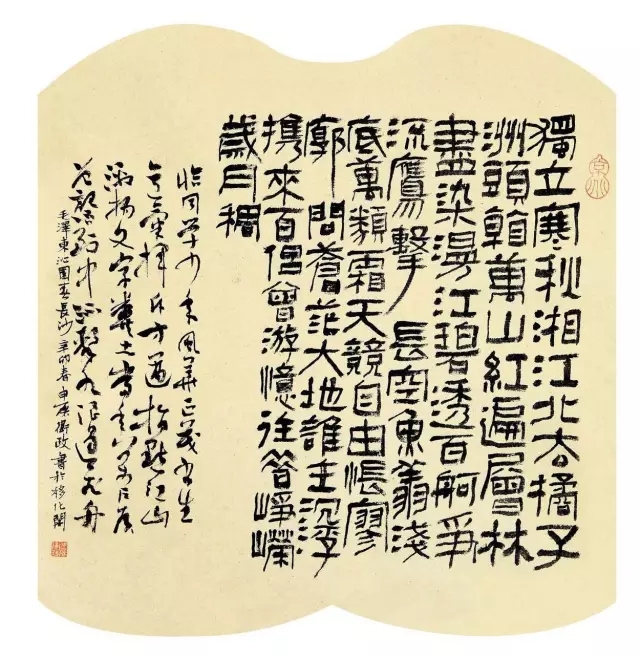 獨立寒秋湘江北去橘子
洲頭看萬山紅遍層林
盡染漫江碧透百舸爭
流鷹擊長空魚翔淺
底萬類霜天競自由悵寥
廓問蒼茫大地誰主沉浮
携來百侶曾游憶往昔崢嶸
歲月稠
恰同学少年風華正茂書生
意氣揮斥方遒指點江山
激揚文字糞土當年万户侯
曾記否到中流擊水浪遏飛舟
毛澤東沁園春長沙辛卯春